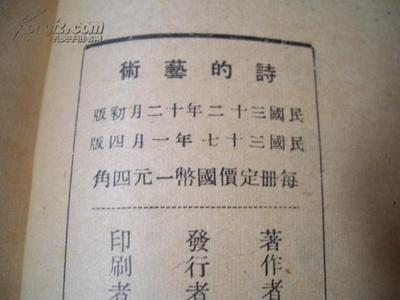 詩的藝術
民國三十二年十二月初版
民國三十七年一月四版
每册定價國幣一元四角
著作者
發行者
印刷者
kongfz.com
孔夫子旧书网